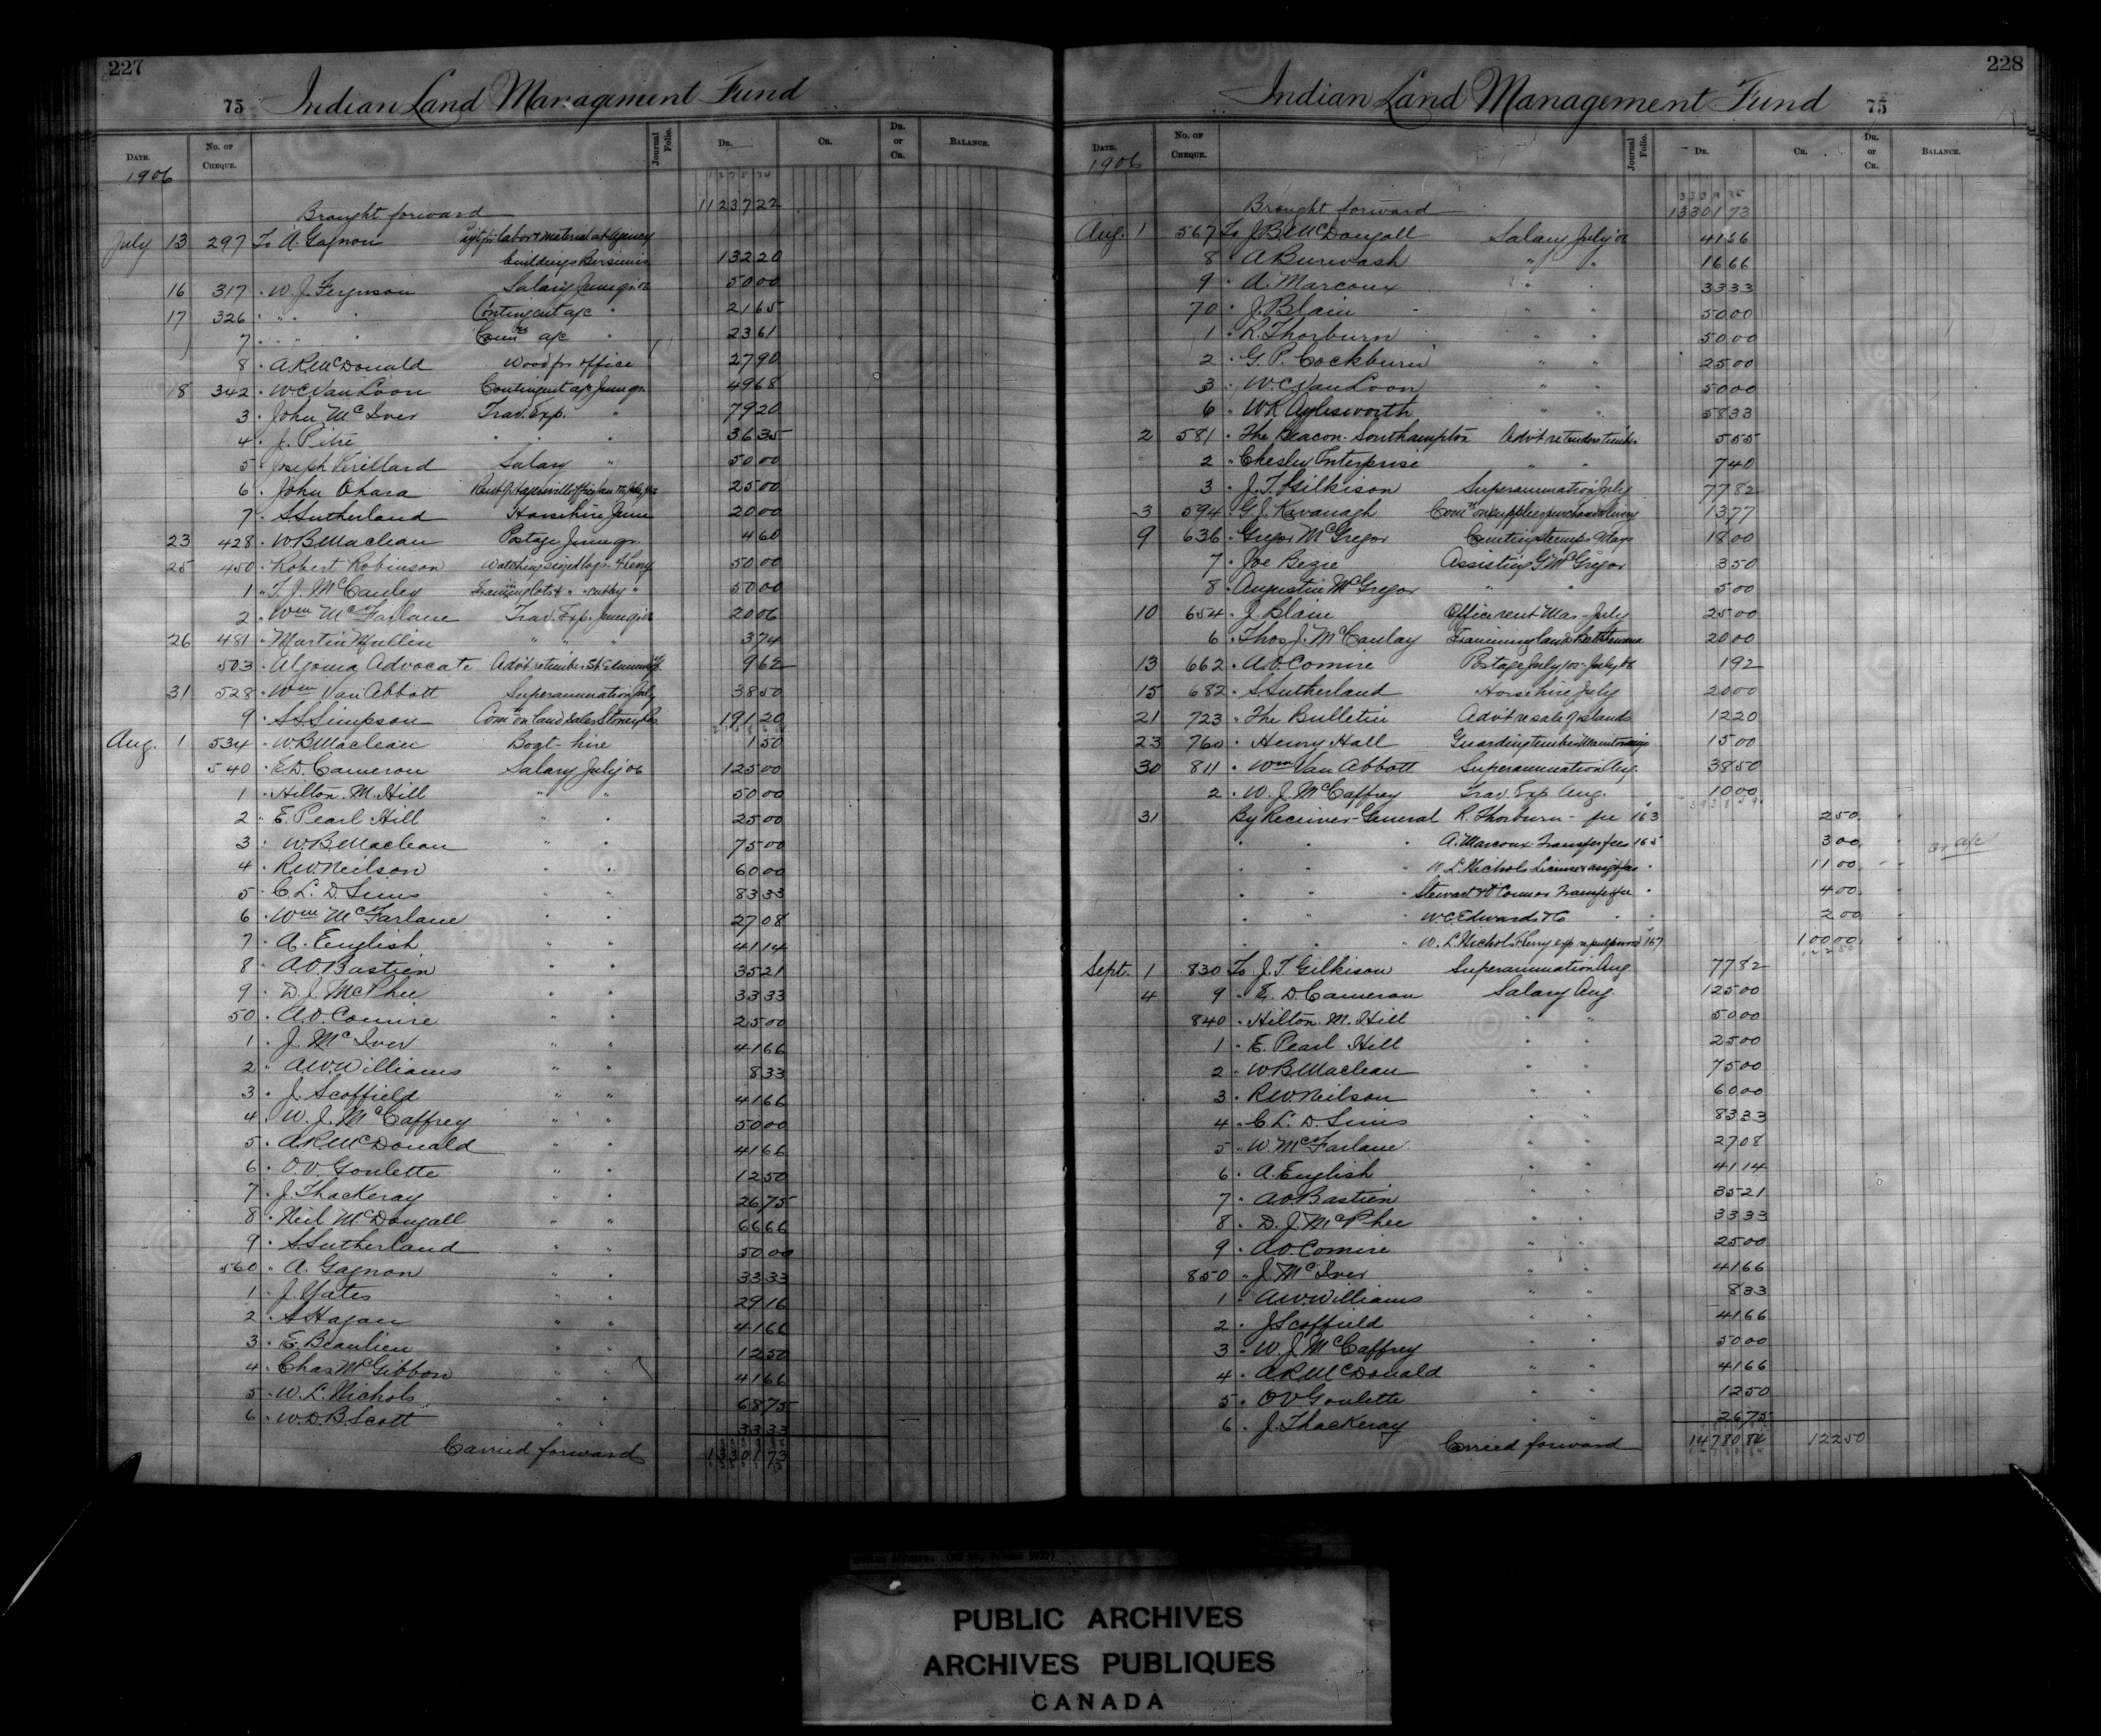 227
75 Indian Land Management Fund
Date. No. of Cheque. Journal Folio. Dr. Cr. Dr. or Cr. Balance.
1906
Brought forward 11237 22
July 13 297 To A. Gagnon Pay't for labor & material at Agency
buildings Bersimis 132 20
16 317 " W. J. Ferguson Salary June qr. 06 50 00
17 326 " " " Contingent a/c " 21 65
7 " " " Com'ns a/c " 23 61
8 " A R McDonald Wood for office 27 90
18 342 " W C Van Loon Contingent a/c June qr. 49 68
3 " John McIver Trav. Exp. " 79 20
4 " J. Pitre " " " 36 35
5 " Joseph Verillard Salary " 50 00
6 " John Ohara Rent of Hagersville office 25 00
7 " S Sutherland Horse hire June 20 00
23 428 " W B Maclean Postage June qr. 4 60
25 450 " Robert Robinson Watching seized logs 50 00
1 " T. J. McCauley 50 00
2 " Wm McFarlane Trav. Exp. June qr. 06 20 06
26 481 " Martin Mullin " " " 3 74
503 " Algoma Advocate Adv't re timber 9 62
31 528 " Wm Van Abbott Superannuation July 38 50
9 " S S Simpson Com'n on land sales Stoney Pt. 191 20
Aug. 1 534 " W B Maclean Boat-hire 1 50
540 " E. D. Cameron Salary July '06 125 00
1 " Hilton M. Hill " " 50 00
2 " E. Pearl Hill " " 25 00
3 " W B Maclean " " 75 00
4 " R W Neilson " " 60 00
5 " C. L. D. Sims " " 83 33
6 " Wm McFarlane " " 27 08
7 " A. English " " 41 14
8 " A O Bastien " " 35 21
9 " D. J. McPhee " " 33 33
50 " A. O. Comire " " 25 00
1 " J. McIver " " 41 66
2 " A W Williams " " 8 33
3 " J. Scoffield " " 41 66
4 " W. J. McCaffrey " " 50 00
5 " A R McDonald " " 41 66
6 " O. V. Goulette " " 12 50
7 " J. Thackeray " " 26 75
8 " Neil McDougall " " 66 66
9 " S. Sutherland " " 50 00
560 " A. Gagnon " " 33 33
1 " J. Yates " " 29 16
2 " S Hagan " " 41 66
3 " E. Beaulieu " " 12 50
4 " Chas McGibbon " " 41 66
5 " W. L. Nichols " " 68 75
6 " W. D. B. Scott " " 33 33
Carried forward 13301 73
228
Indian Land Management Fund 75
Date. No. of Cheque. Journal Folio. Dr. Cr. Dr. or Cr. Balance.
1906
Brought forward 13301 73
Aug. 1 567 To J B McDougall Salary July '06 41 36
8 " A Burwash " " 16 66
9 " A. Marcoux " " 33 33
70 " J. Blain " " 50 00
1 " R. Thorburn " " 50 00
2 " G. P. Cockburn " " 25 00
3 " W. C. Van Loon " " 50 00
6 " W R Aylesworth " " 58 33
2 581 " The Beacon-Southampton Adv't re tenders timber 5 55
2 " Chesley Enterprise " " 7 40
3 " J. T. Gilkison Superannuation July 77 82
3 594 " G. J. Kavanagh Com'n on supplies purchased 13 77
9 636 " Gregor McGregor Counting stumps 9 days 18 00
7 " Joe Bezie Assisting G McGregor 3 50
8 " Augustin McGregor " " 5 00
10 654 " J. Blain Office rent Mar-July 25 00
6 " Thos. J. McCaulay Examining lands Batchewana 20 00
13 662 " A O. Comire Postage July '05-July '06 1 92
15 682 " S Sutherland Horse hire July 20 00
21 723 " The Bulletin Adv't re sale of islands 12 20
23 760 " Henry Hall Guarding timber 15 00
30 811 " Wm Van Abbott Superannuation Aug. 38 50
2 " W. J. McCaffrey Trav. Exp. Aug. 10 00
31 By Receiver-General R. Thorburn - fee 163 2 50
" " " A. Marcoux Transfer fees 165 3 00 on a/c
" " " W. L. Nichols License & assig't fees " 11 00
" " " Stewart & O'Connor Transfer fee " 4 00
" " " W. C. Edwards & Co " " 2 00
" " " W. L. Nichols exp re pulpwood 167 100 00
Sept. 1 830 To J. T. Gilkison Superannuation Aug. 77 82
4 9 " E. D. Cameron Salary Aug. 125 00
840 " Hilton M. Hill " " 50 00
1 " E. Pearl Hill " " 25 00
2 " W B Maclean " " 75 00
3 " R W Neilson " " 60 00
4 " C. L. D. Sims " " 83 33
5 " W. McFarlane " " 27 08
6 " A. English " " 41 14
7 " A O Bastien " " 35 21
8 " D. J. McPhee " " 33 33
9 " A O. Comire " " 25 00
850 " J. McIver " " 41 66
1 " A W Williams " " 8 33
2 " J Scoffield " " 41 66
3 " W. J. McCaffrey " " 50 00
4 " A R McDonald " " 41 66
5 " O V Goulette " " 12 50
6 " J. Thackeray " " 26 75
Carried forward 14780 84 122 50
PUBLIC ARCHIVES
ARCHIVES PUBLIQUES
CANADA